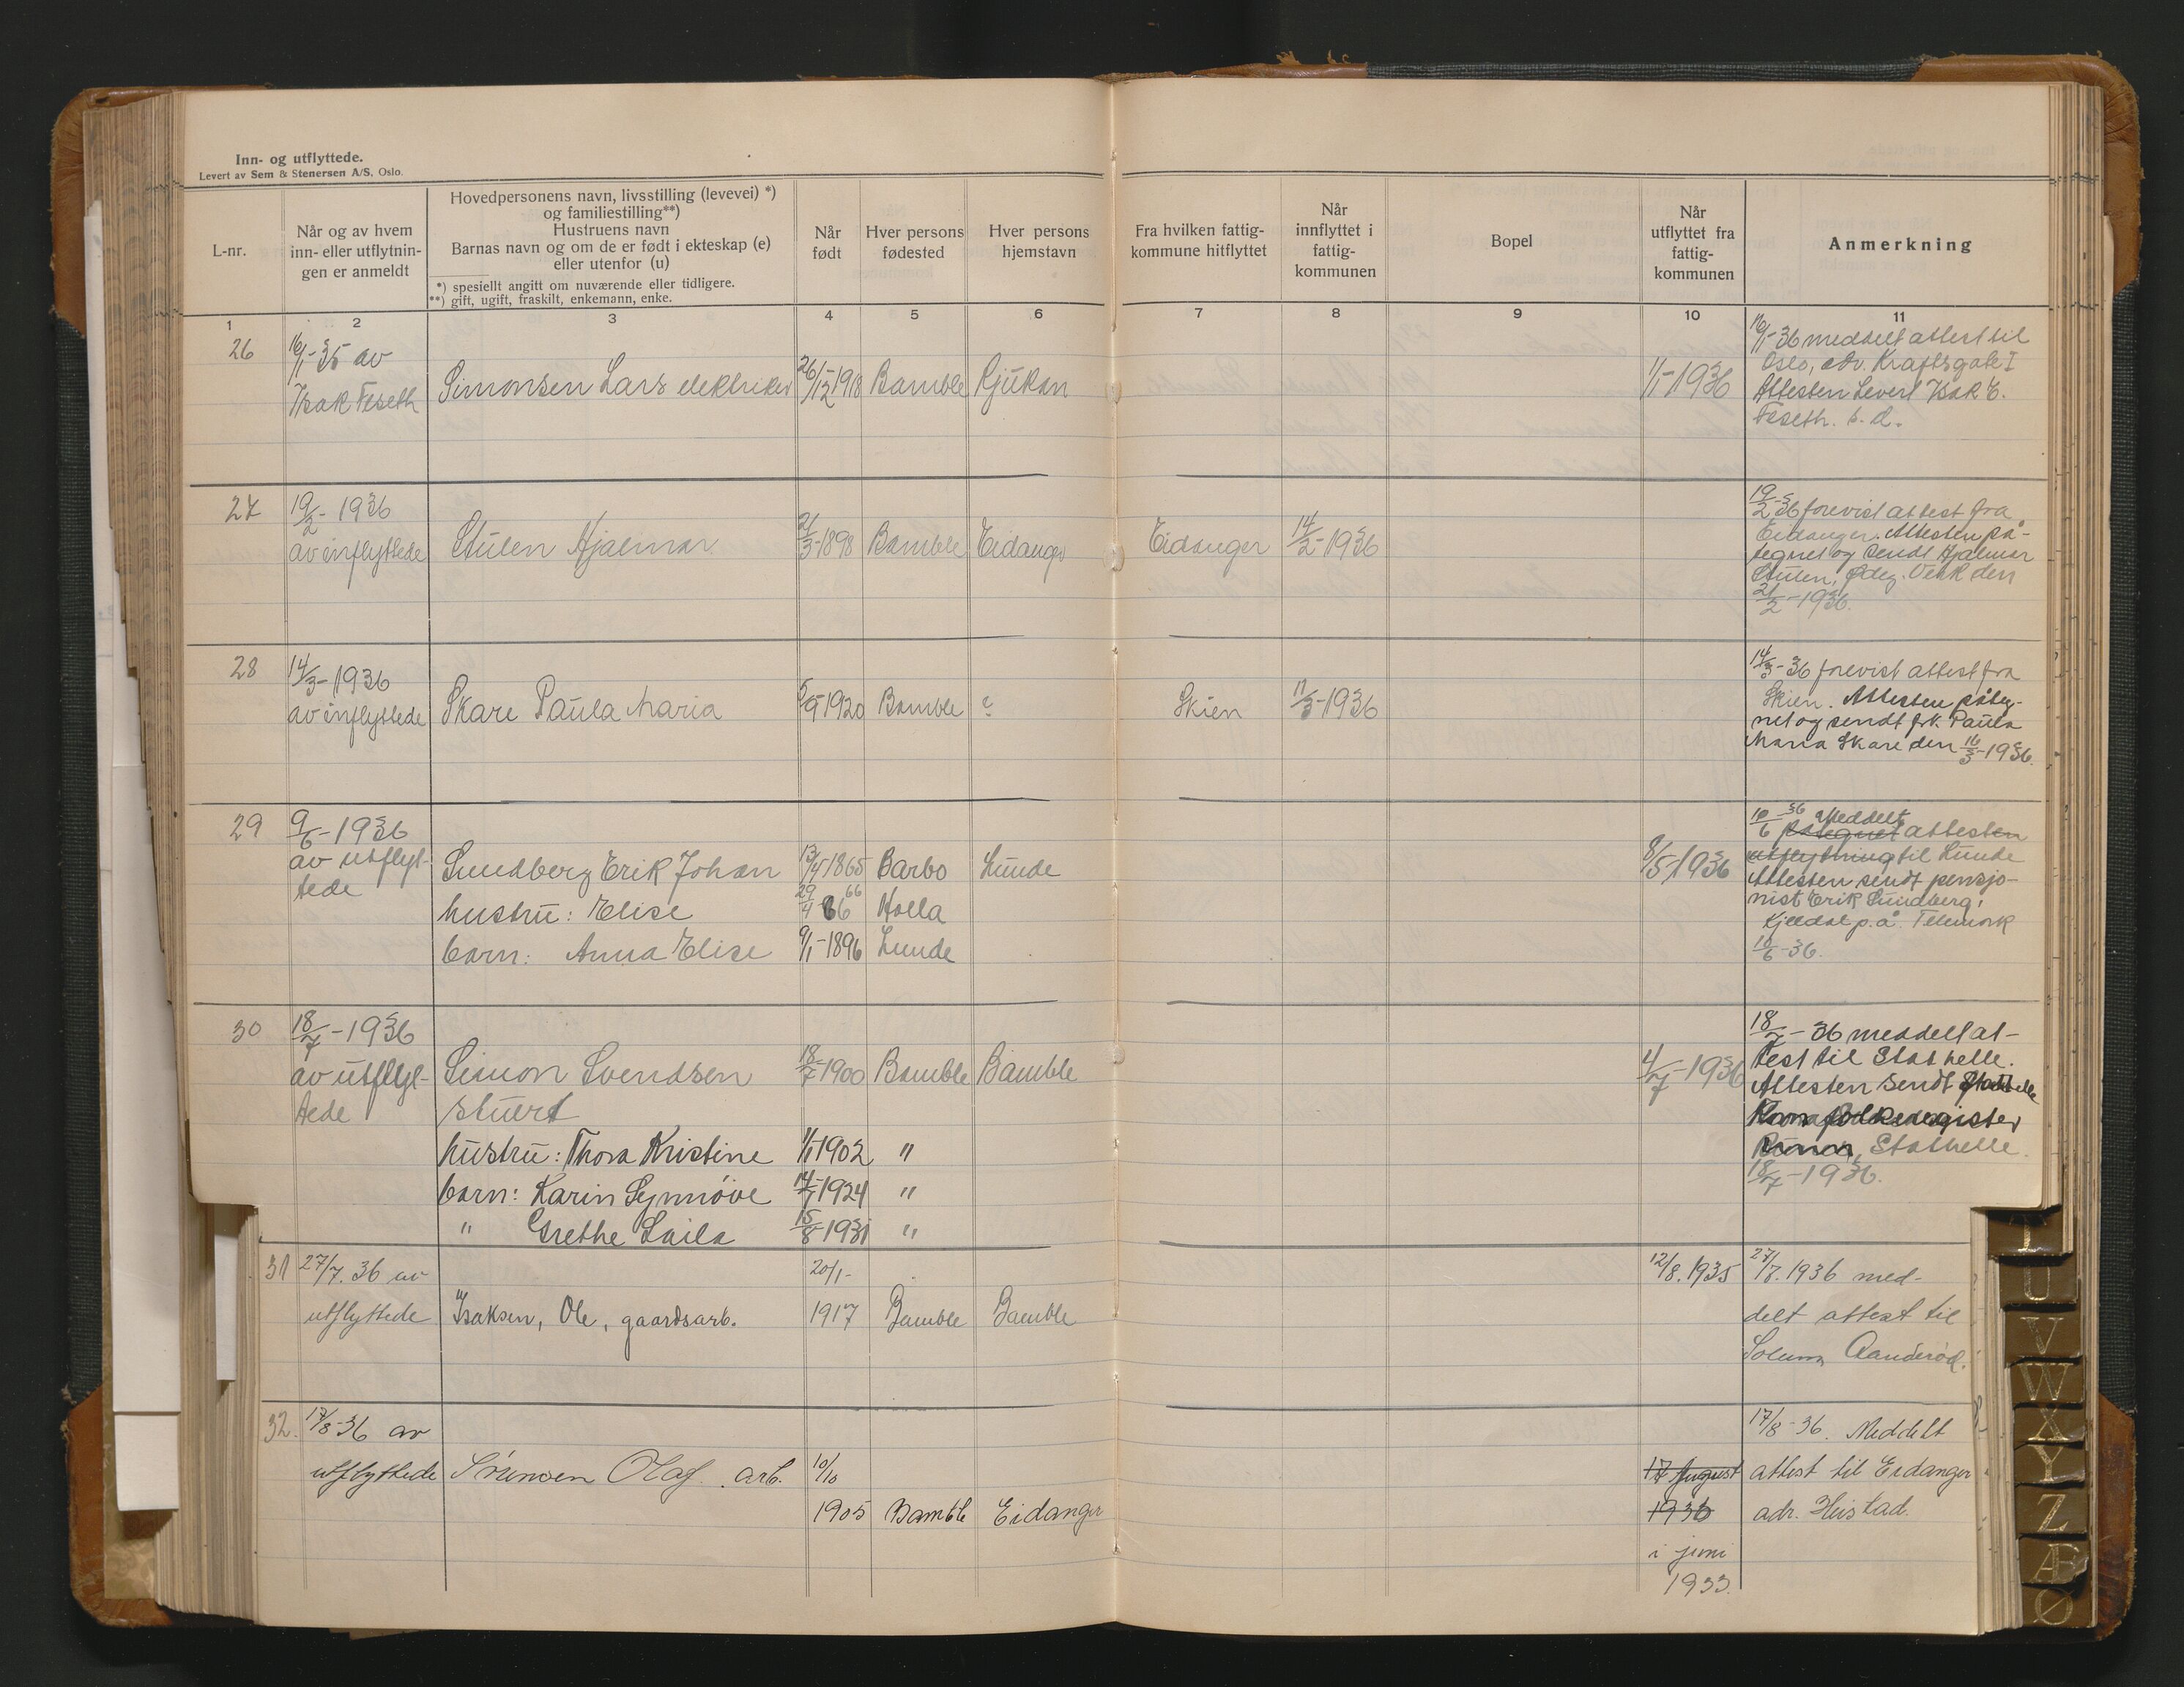 Inn- og utflyttede.
Levert av Sem & Stenersen A/S, Oslo.
L-nr.
Når og av hvem
inn- eller utflytnin-
gen er anmeldt
Hovedpersonens navn, livsstilling (levevei) *)
og familiestilling**)
Hustruens navn
Barnas navn og om de er født i ekteskap (e)
eller utenfor (u)
*) spesielt angitt om nuværende eller tidligere.
**) gift, ugift, fraskilt, enkemann, enke.
Når
født
Hver persons
fødested
Hver persons
hjemstavn
Fra hvilken fattig-
kommune hitflyttet
Når
innflyttet i
fattig-
kommunen
Bopel
Når
utflyttet fra
fattig-
kommunen
Anmerkning
1 2 3 4 5 6 7 8 9 10 11
26
16/1-35 av
Isak Feseth
Simonsen Lars elektriker
26/12 1918
Bamble
Rjukan
1/1-1936
16/1-36 meddelt attest til
Oslo, adr. Kraftsgate I
Attesten levert Isak E.
Feseth. s. d.
27
19/2-1936
av inflyttede
Stulen Hjalmar
21/3-1898
Bamble
Eidanger
Eidanger
14/2-1936
19/2-36 forevist attest fra
Eidanger. Attesten på-
tegnet og sendt Hjalmar
Stulen, Ødeg. Verk den
21/2-1936.
28
14/3-1936
av inflyttede
Skare Paula Maria
5/9-1920
Bamble
?
Skien
11/3-1936
14/3-36 forevist attest fra
Skien. Attesten påteg-
net og sendt frk. Paula
Maria Skare den 16/3-1936.
29
9/6-1936
av utflyt-
tede
Sundberg Erik Johan
13/4 1865
Barbo
Lunde
hustru: Elise
29/4 66 66
Holla
barn: Anna Elise
9/1-1896
Lunde
8/5-1936
10/6 36 Meddelt
påtegnet attesten
utflytning til Lunde
Attesten sendt pensjo-
nist Erik Sundberg,
Kjeldal p.å. Telemark
10/6-36.
30
18/7-1936
av utflyt-
tede
Simon Svendsen
18/7 1900
Bamble
Bamble
stuert
hustru: Thora Kristine
1/1 1902
"
barn: Karin Synnøve
14/7 1924
"
" Grethe Laila
15/8-1931
"
4/7-1936
18/7-36 meddelt at-
test til Stathelle.
Attesten sendt Stathelle
folkeregister
Stathelle.
18/7-1936.
31
27/7. 36 av
utflyttede
Isaksen, Ole, gaardsarb.
20/1-
1917
Bamble
Bamble
12/8. 1935
27/7. 1936 med-
delt attest til
Solum Aanderød.
32.
17/8-36 av
utflyttede
Sørensen Olaf. arb.
10/10
1905
Bamble
Eidanger
17 August
1936
i juni
1933.
17/8-36. Meddelt
attest til Eidanger
adr. Heistad.
T
U
V
W
X
Y
Z
Æ
Ø